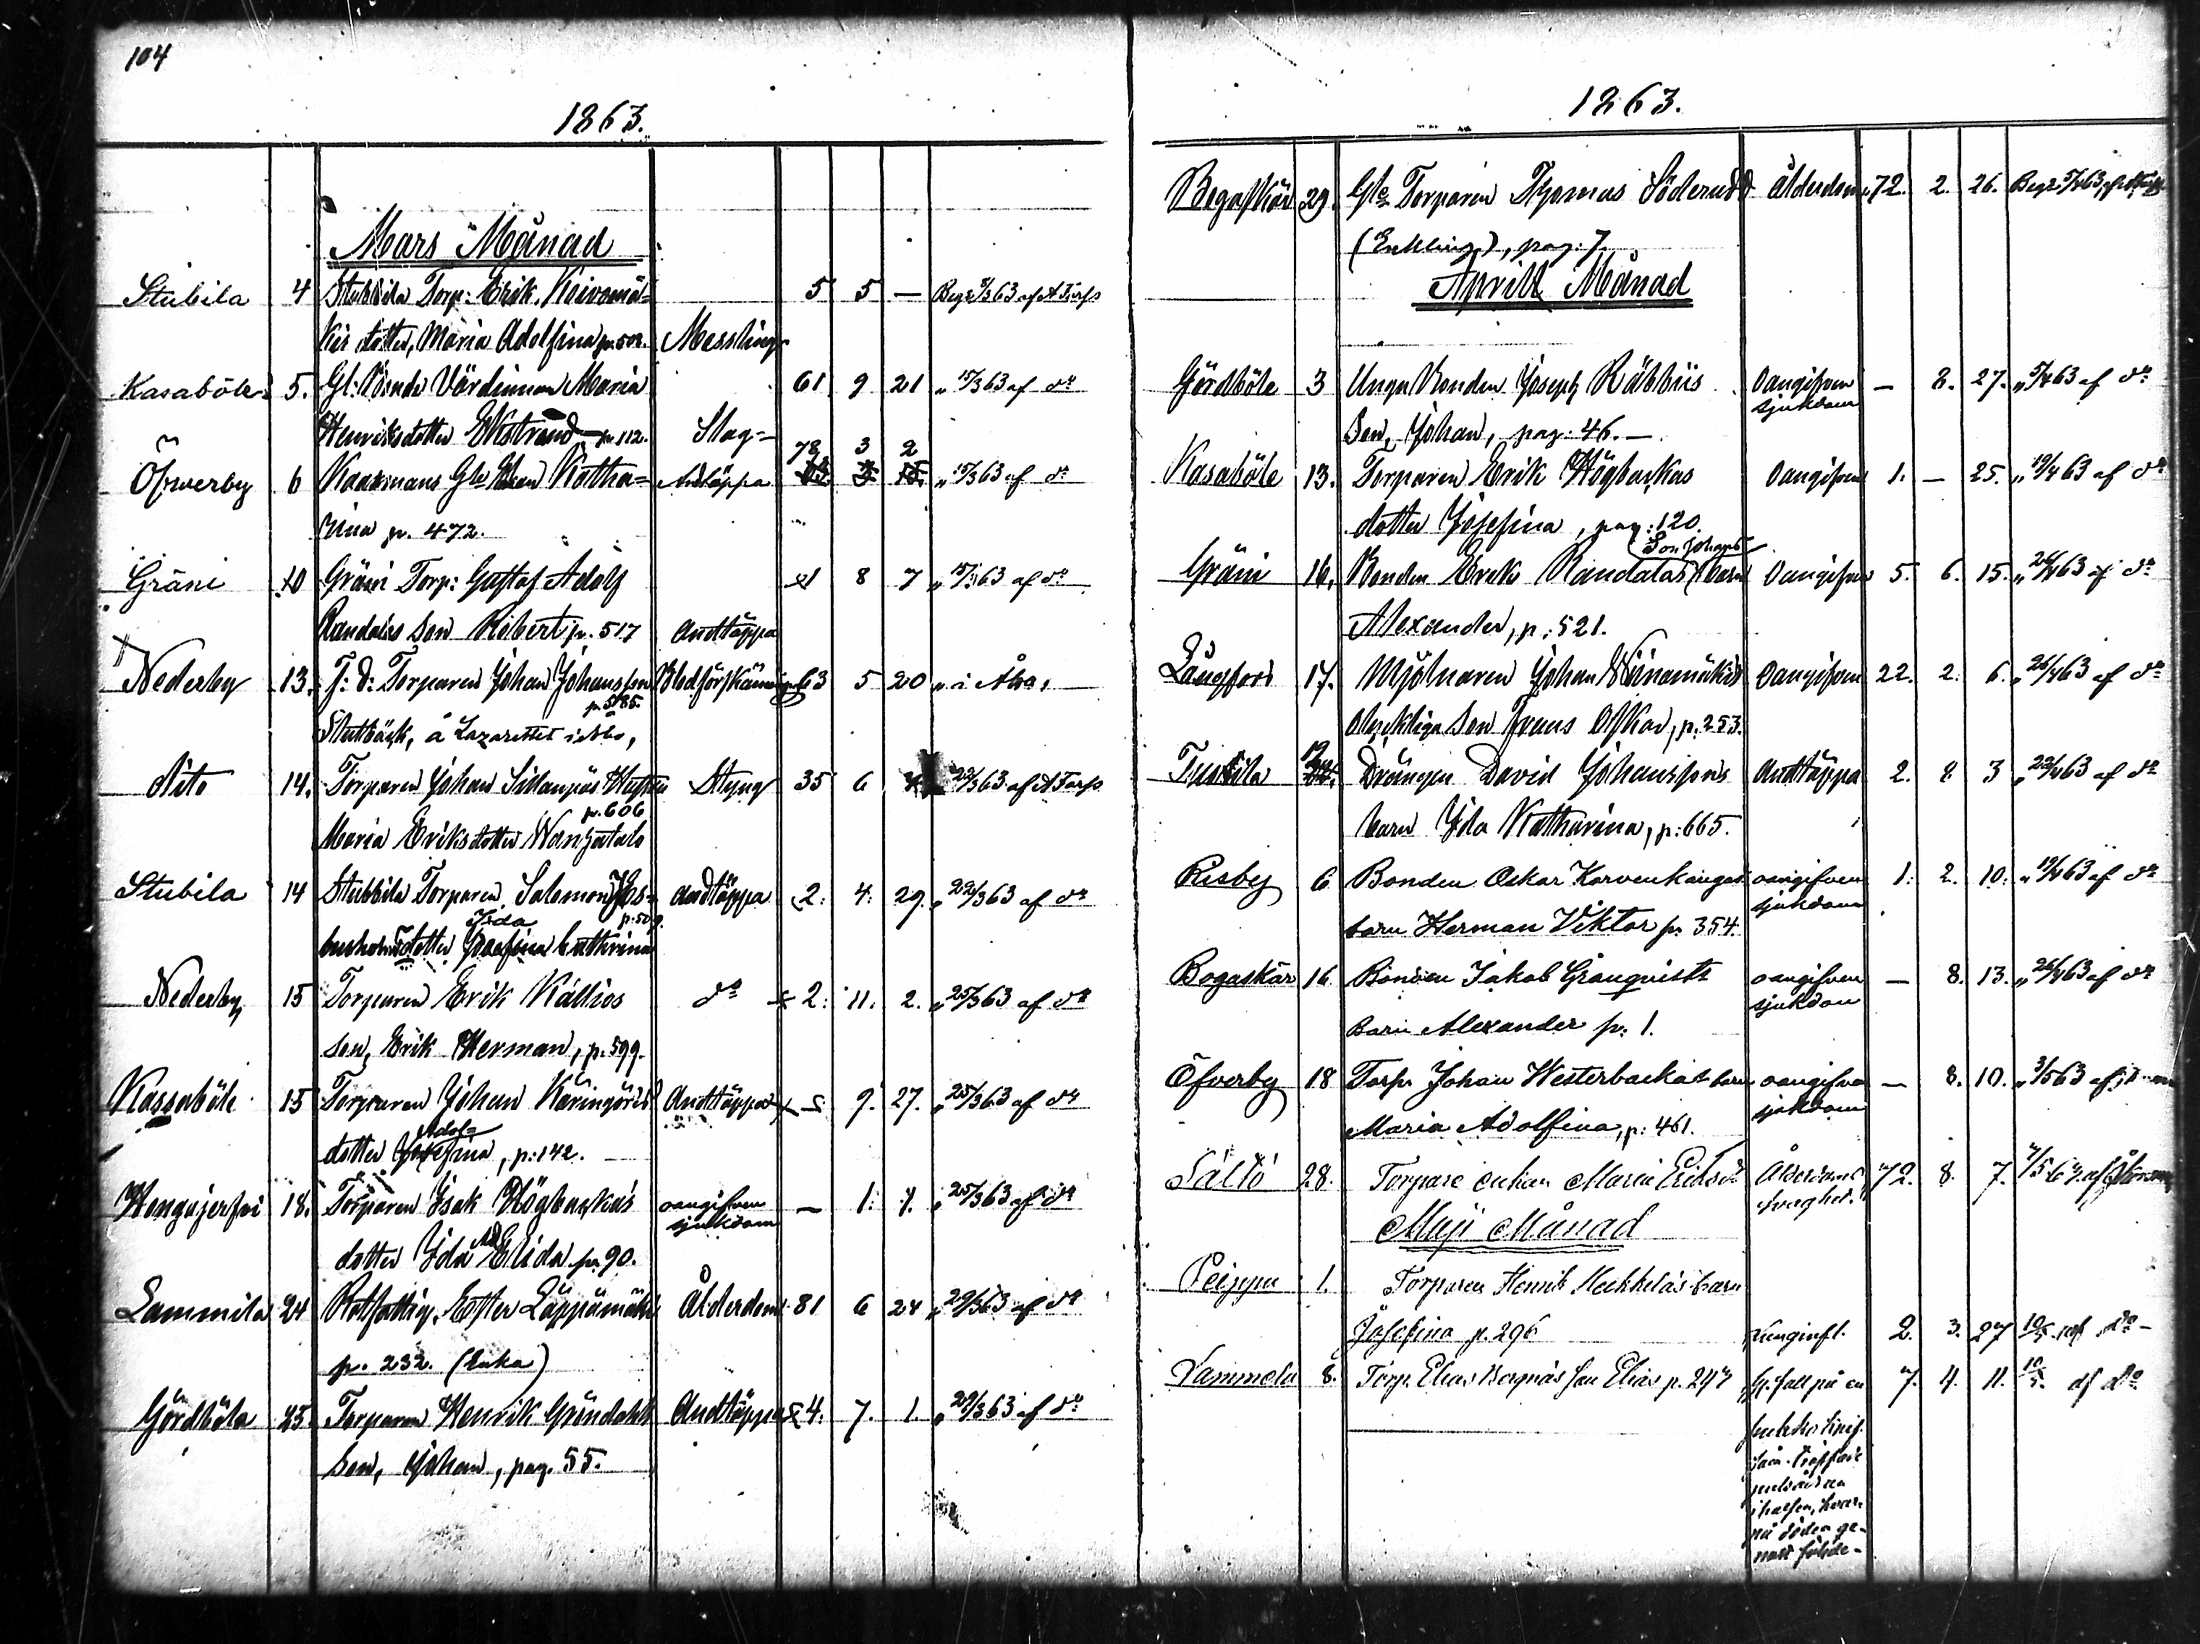 104
1863.
Mars Månad
Stubila 4 Stubbila Torp: Erik Koivomä= 5 5 — Begr. 8/3 63 af A Forss
kis dotter, Maria Adolfina p. 502. Messling
Kasaböle 5. Gl: Bonde Värdinnan Maria 61 9 21 „ 15/3 63 af do
Henriksdotter Ekstrand p. 112. Slag=
Öfverby 6 Gle Katha= Andtäppa 73 3 2 „ 15/3 63 af do
rina p. 472.
Gräni 10 Gräni Torp: Gustaf Adolf 1 8 7 „ 15/3 63 af do
Randalas Son Robert p. 517 Andtäppa
Nederby 13. F: d: Torparen Johan Johansson Blodförskämning 63 5 20 „ i Åbo,
p. 585.
Stutbäck, å Lazarettet i Åbo,
dito 14. Torparen Johan Sillanpäs Hustru Styng 35 6 „ 22/3 63 af A Forss
p. 606
Maria Eriksdotter Wanhatalo
Stubila 14 Stubbila Torparen Salomon Andtäppa 2: 4: 29. „ 22/3 63 af do
Ida p. 509.
dotter Cathrina
Nederby 15 Torparen Erik Kállios do 2: 11. 2. „ 25/3 63 af do
son, Erik Herman, p. 599.
Kassaböle 15 Torparen Johan Käringörs Andtäppa 9. 27. „ 25/3 63 af do
Adol=
dotter fina, p: 142.
Hongajerfvi 18. Torparen Isak Högbackas oangifven — 1: 1. „ 25/3 63 af do
sjukdom
dotter Ida Elida p. 90.
Lammila 24 Rotfattig. Ester Läppämäki Ålderdom 81 6 24 „ 29/3 63 af do
p. 232. (Enka)
Gördböle 25. Torparen Henrik Gröndahls Andtäppa 4. 7. 1. „ 29/3 63 af do
Son, Johan, pag. 55.
1863.
Bogaskär 29. Gle Torparen Thomas Söderudd Ålderdom 72. 2. 26. Begr.
(Enkling), pag: 7.
Aprill Månad
Gördböle 3 Unga Bonden Joseph Räbbiis Oangifven — 8. 27. „ 5/4 63 af do
sjukdom
Son, Johan, pag: 46. —
Kasaböle 13. Torparen Erik Högbackas Oangifven 1. — 25. „ 19/4 63 af do
dotter Josefina, pag: 120.
Son Johans
Gräni 16. Bonden Erik Randalas barn Oangifven 5. 6. 15. „ 26/4 63 af do
Alexander, p: 521.
Långfors 17. Mjölnaren Johan Niinamäkis Oangifven 22. 2. 6. „ 26/4 63 af do
Oäckta Son Frans Oskar, p. 253.
Tuskila 12 Drängen David Johanssons Andtäppa 2. 8. 3 „ 22/4 63 af do
barn Ida Katharina, p: 665.
Risby 6 Bonden Oskar Korvenkangas oangifven 1. 2. 10. „ 19/4 63 af do
sjukdom
barn Herman Viktor p. 354.
Bogaskär 16. Bonden Jakob Granqvists oangifven — 8. 13. „ 26/4 63 af do
sjukdom
Barn Alexander p. 1.
Öfverby 18 Torp. Johan Westerbackas barn oangifven — 8. 10. „ 3/5 63 af
sjukdom
Maria Adolfina, p: 461.
Såltö 28. Torpare enkan Maria Eriksd. Ålderdoms 72. 8. 7.
svaghet.
Maji Månad
Peippu 1. Torparen Henrik Heikkiläs barn
Josefina p. 296 Lunginfl. 2. 3. 27 10/5. af do —
Lammela 8. Torp. Elias Bergnäs son Elias p. 247 fall på en 7. 4. 11. 10/5. af do
i halsen, hvar=
på döden ge=
nast följde —